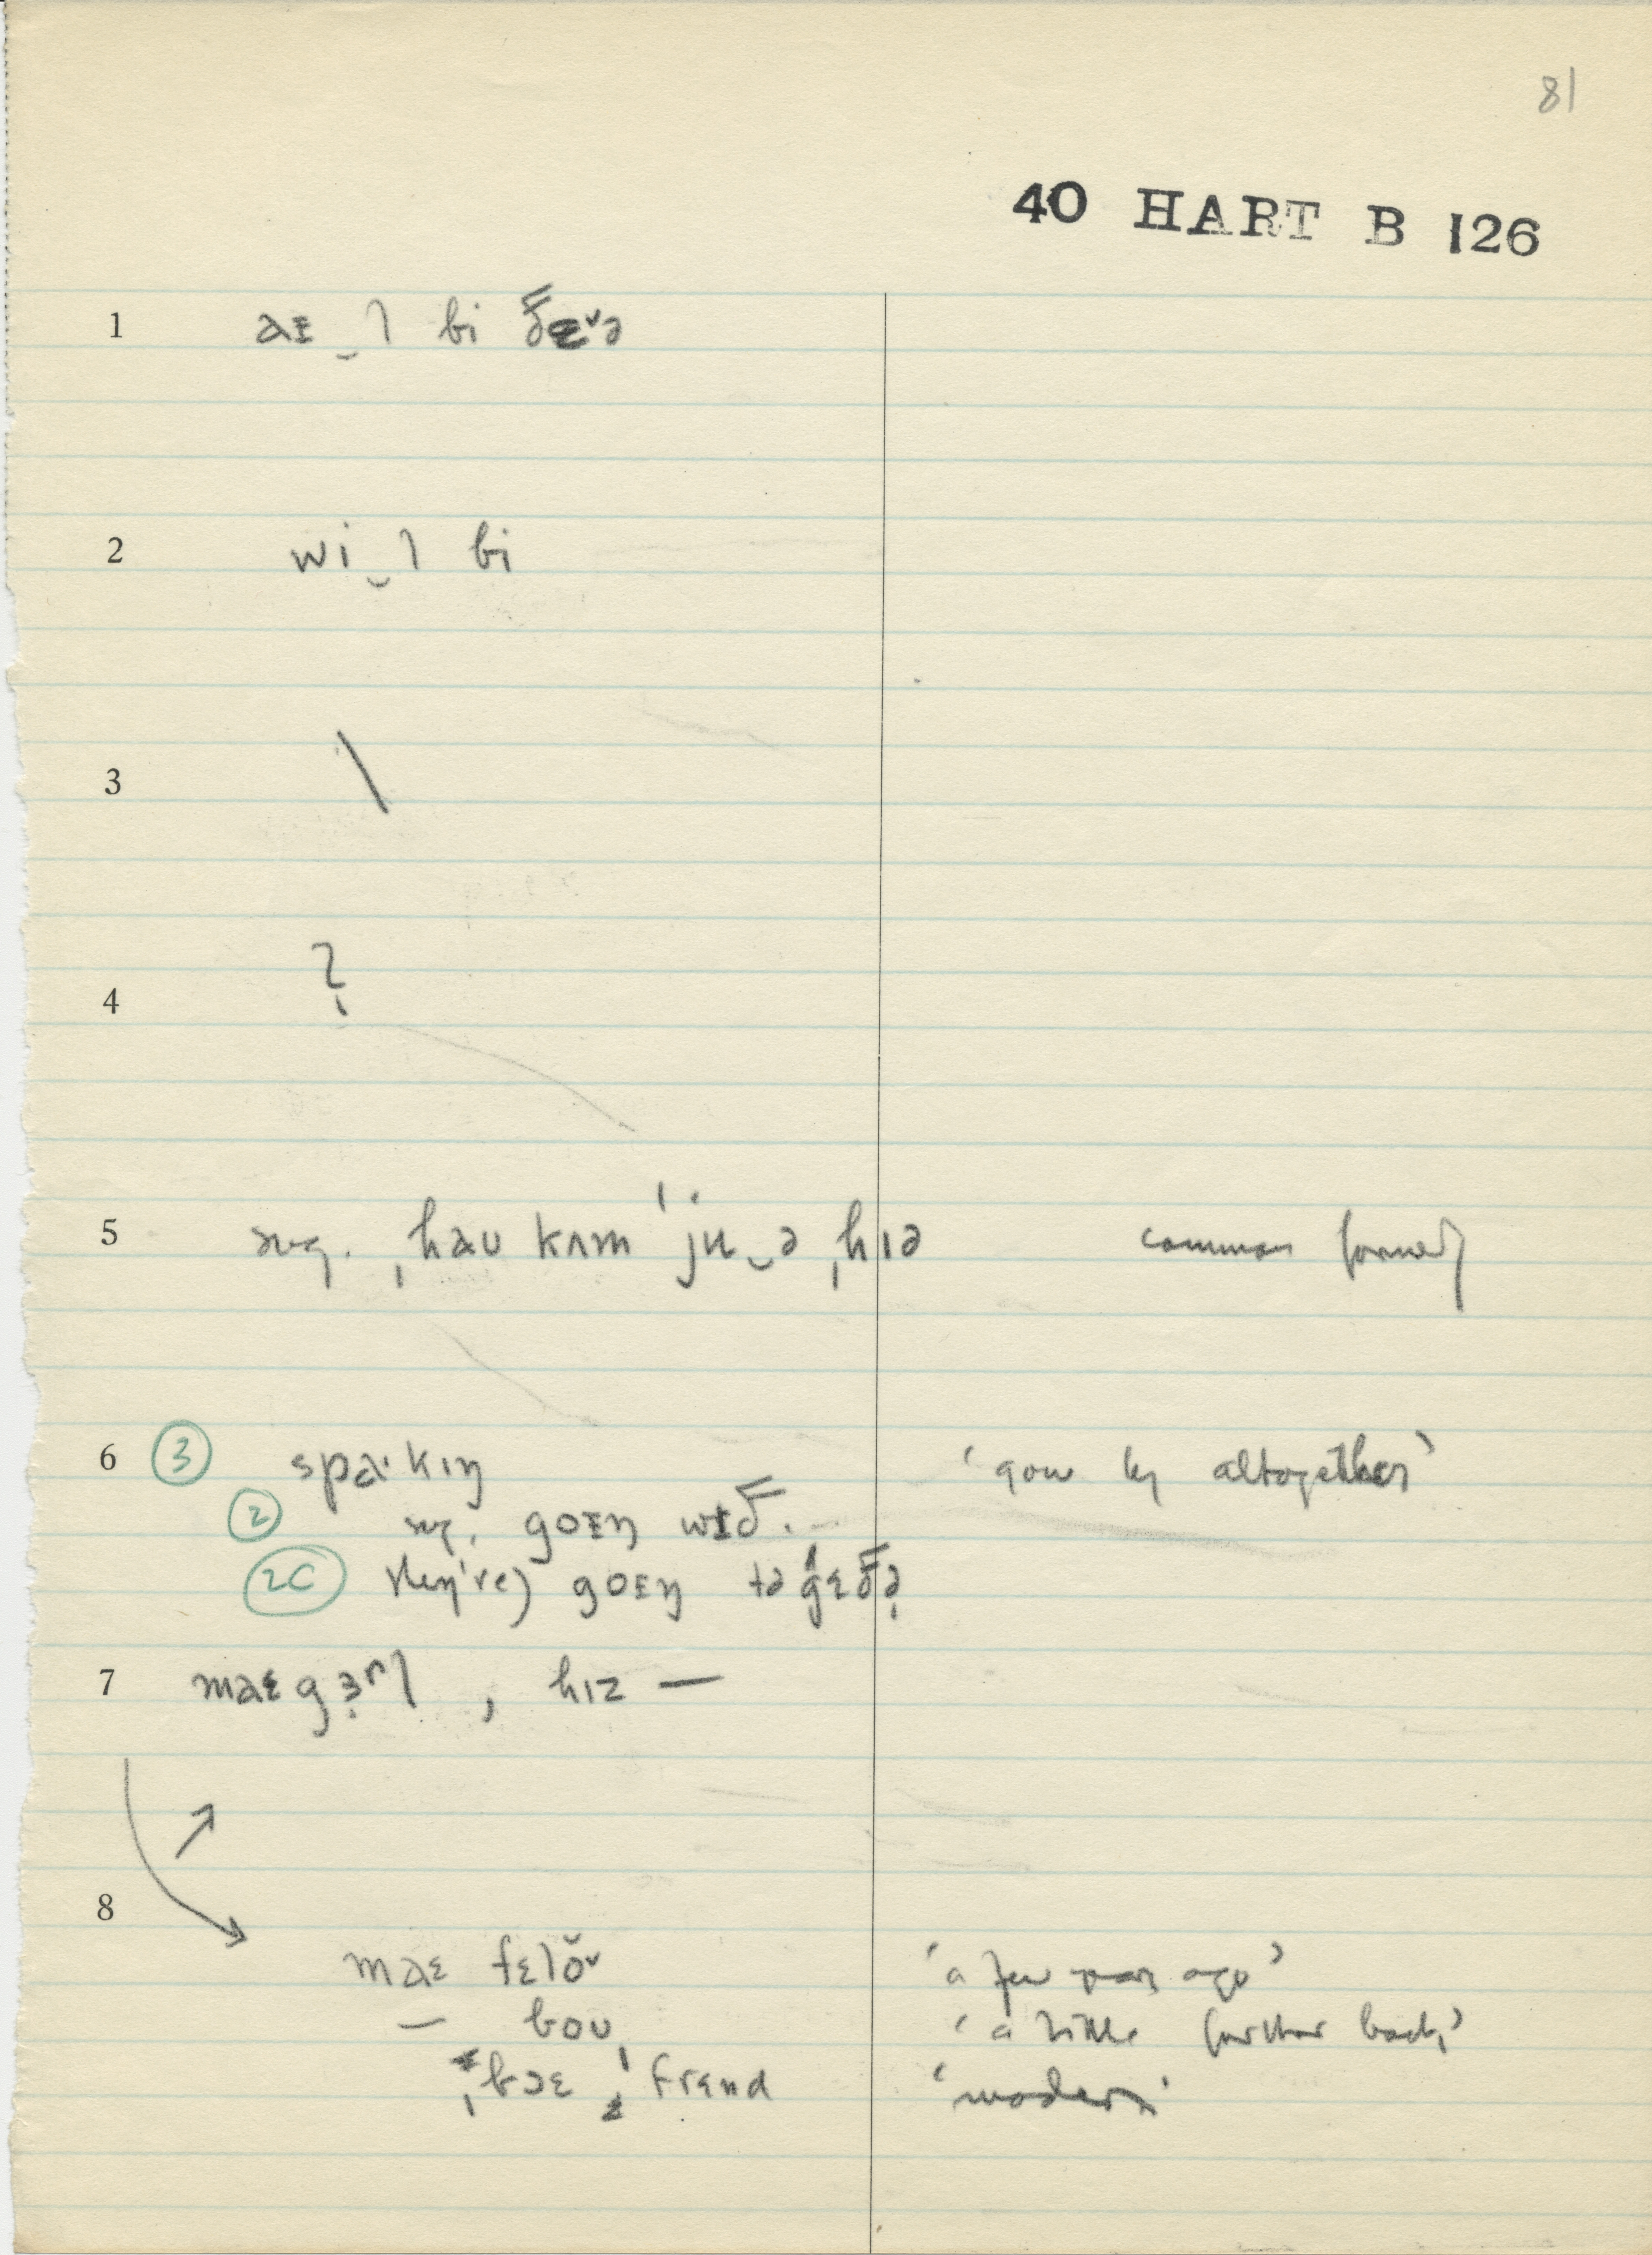 81
40 HART B 126
1 aɪ‿l bi ðɛ˅ə
2 wi‿l bi
3 \
4 ?
5 sug. ˌhau kʌm ˈju‿ə ˌhɪə common formerly
6 ③ spaˑkɪŋ ‘gone by altogether’
② sug. goɪŋ wɪð.
②c they're) goɪŋ təgɛðə
7 maɛ gɜʳl , hɪz —
8
maɛ fɛlo˅ ‘a few years ago’
— boʊ ‘a little further back’
ˌbɔɛ ˌfrɛnd ‘modern’